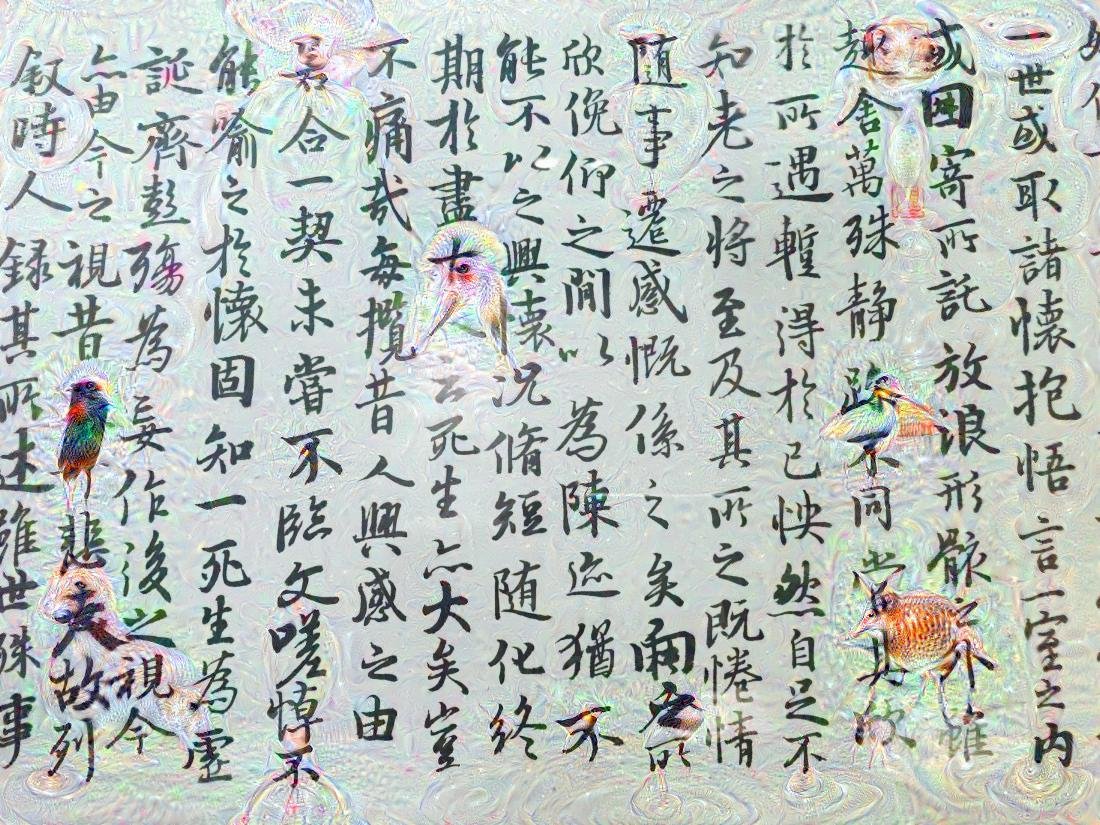 一世或取諸懷抱悟言一室之内
或因寄所託放浪形骸之外雖
趣舍萬殊静躁不同當其欣
於所遇暫得於己怏然自足不
知老之將至及其所之既惓情
隨事遷感慨係之矣向之所
欣俛仰之閒以為陳迹猶不
能不以之興懷况脩短隨化終
期於盡云死生亦大矣豈
不痛哉每攬昔人興感之由
合一契未嘗不臨文嗟悼不
能喻之於懷固知一死生為虛
誕齊彭殤為妄作後之視今
亦由今之視昔悲夫故列
叙時人録其所述雖世殊事